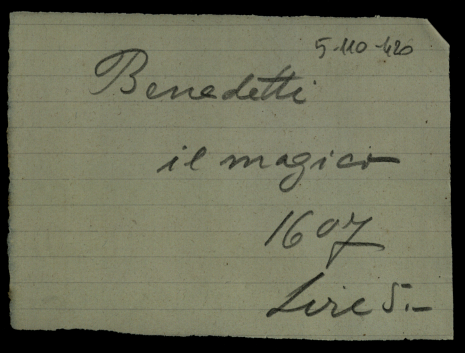 5-110-420
Benedetti
il magico
1607
Lire 5.-